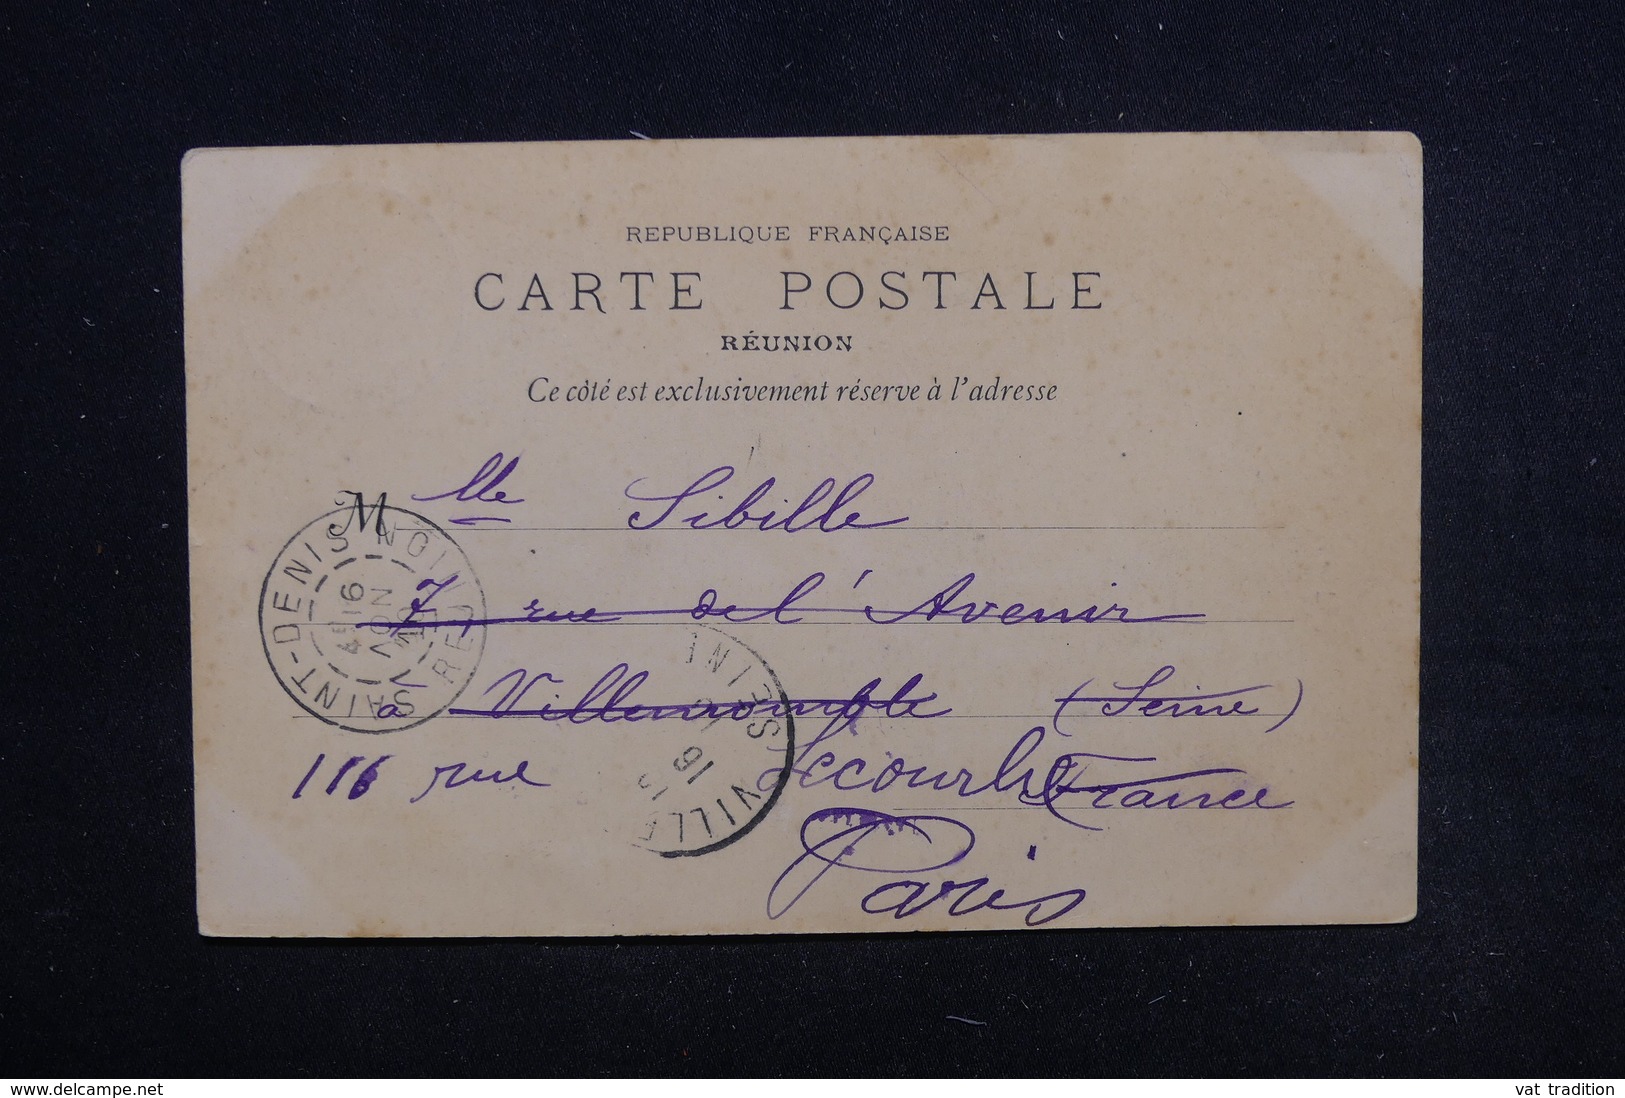 REPUBLIQUE FRANÇAISE
CARTE POSTALE
RÉUNION
Ce côté est exclusivement réserve à l'adresse
M lle Sibille
7, rue de l'Avenir
à Villemomble (Seine)
116 rue Lecourbe France
Paris
SAINT-DENIS RÉUNION
16
NOV
VILLE
SEINE
16
delcampe.net
vat tradition